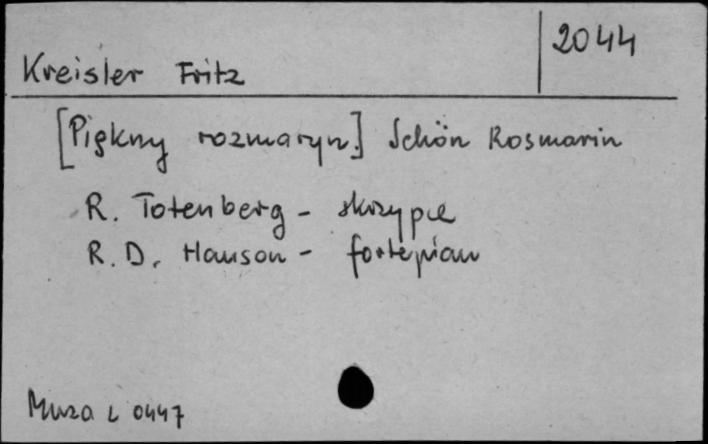 2044
Kreisler Fritz
[Piękny rozmaryn.] Schön Rosmarin
R. Totenberg - skrzypce
R. D. Hanson - fortepian
Muza L 0447